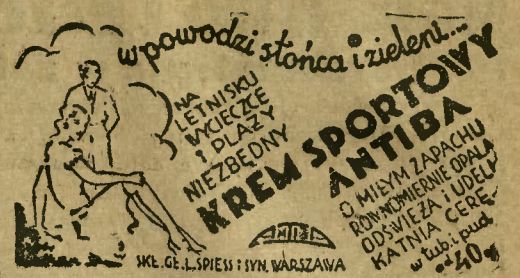 w powodzi słońca i zieleni...
NA
LETNISKU
WYCIECZCE
I PLAŻY
NIEZBĘDNY
KREM SPORTOWY
ANTIBA
O MIŁYM ZAPACHU
RÓWNOMIERNIE OPALA
ODŚWIEŻA I UDELI-
KATNIA CERĘ-
w tub. i pud.
od 40 g
ANTIBA
SKŁ. GŁ. L. SPIESS i SYN, WARSZAWA